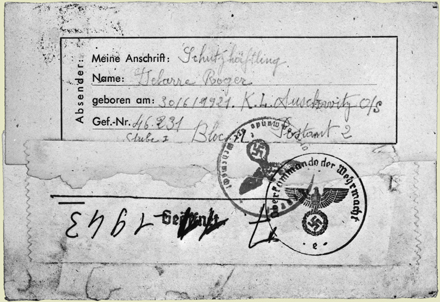 Absender:
Meine Anschrift: Schutzhäftling
Name: Delarre Roger
geboren am: 30/6/1921. K.L. Auschwitz O/S
Gef.-Nr. 46.231 Block Postamt 2
Stube
Oberkommando der Wehrmacht
e
Geprüft
1943